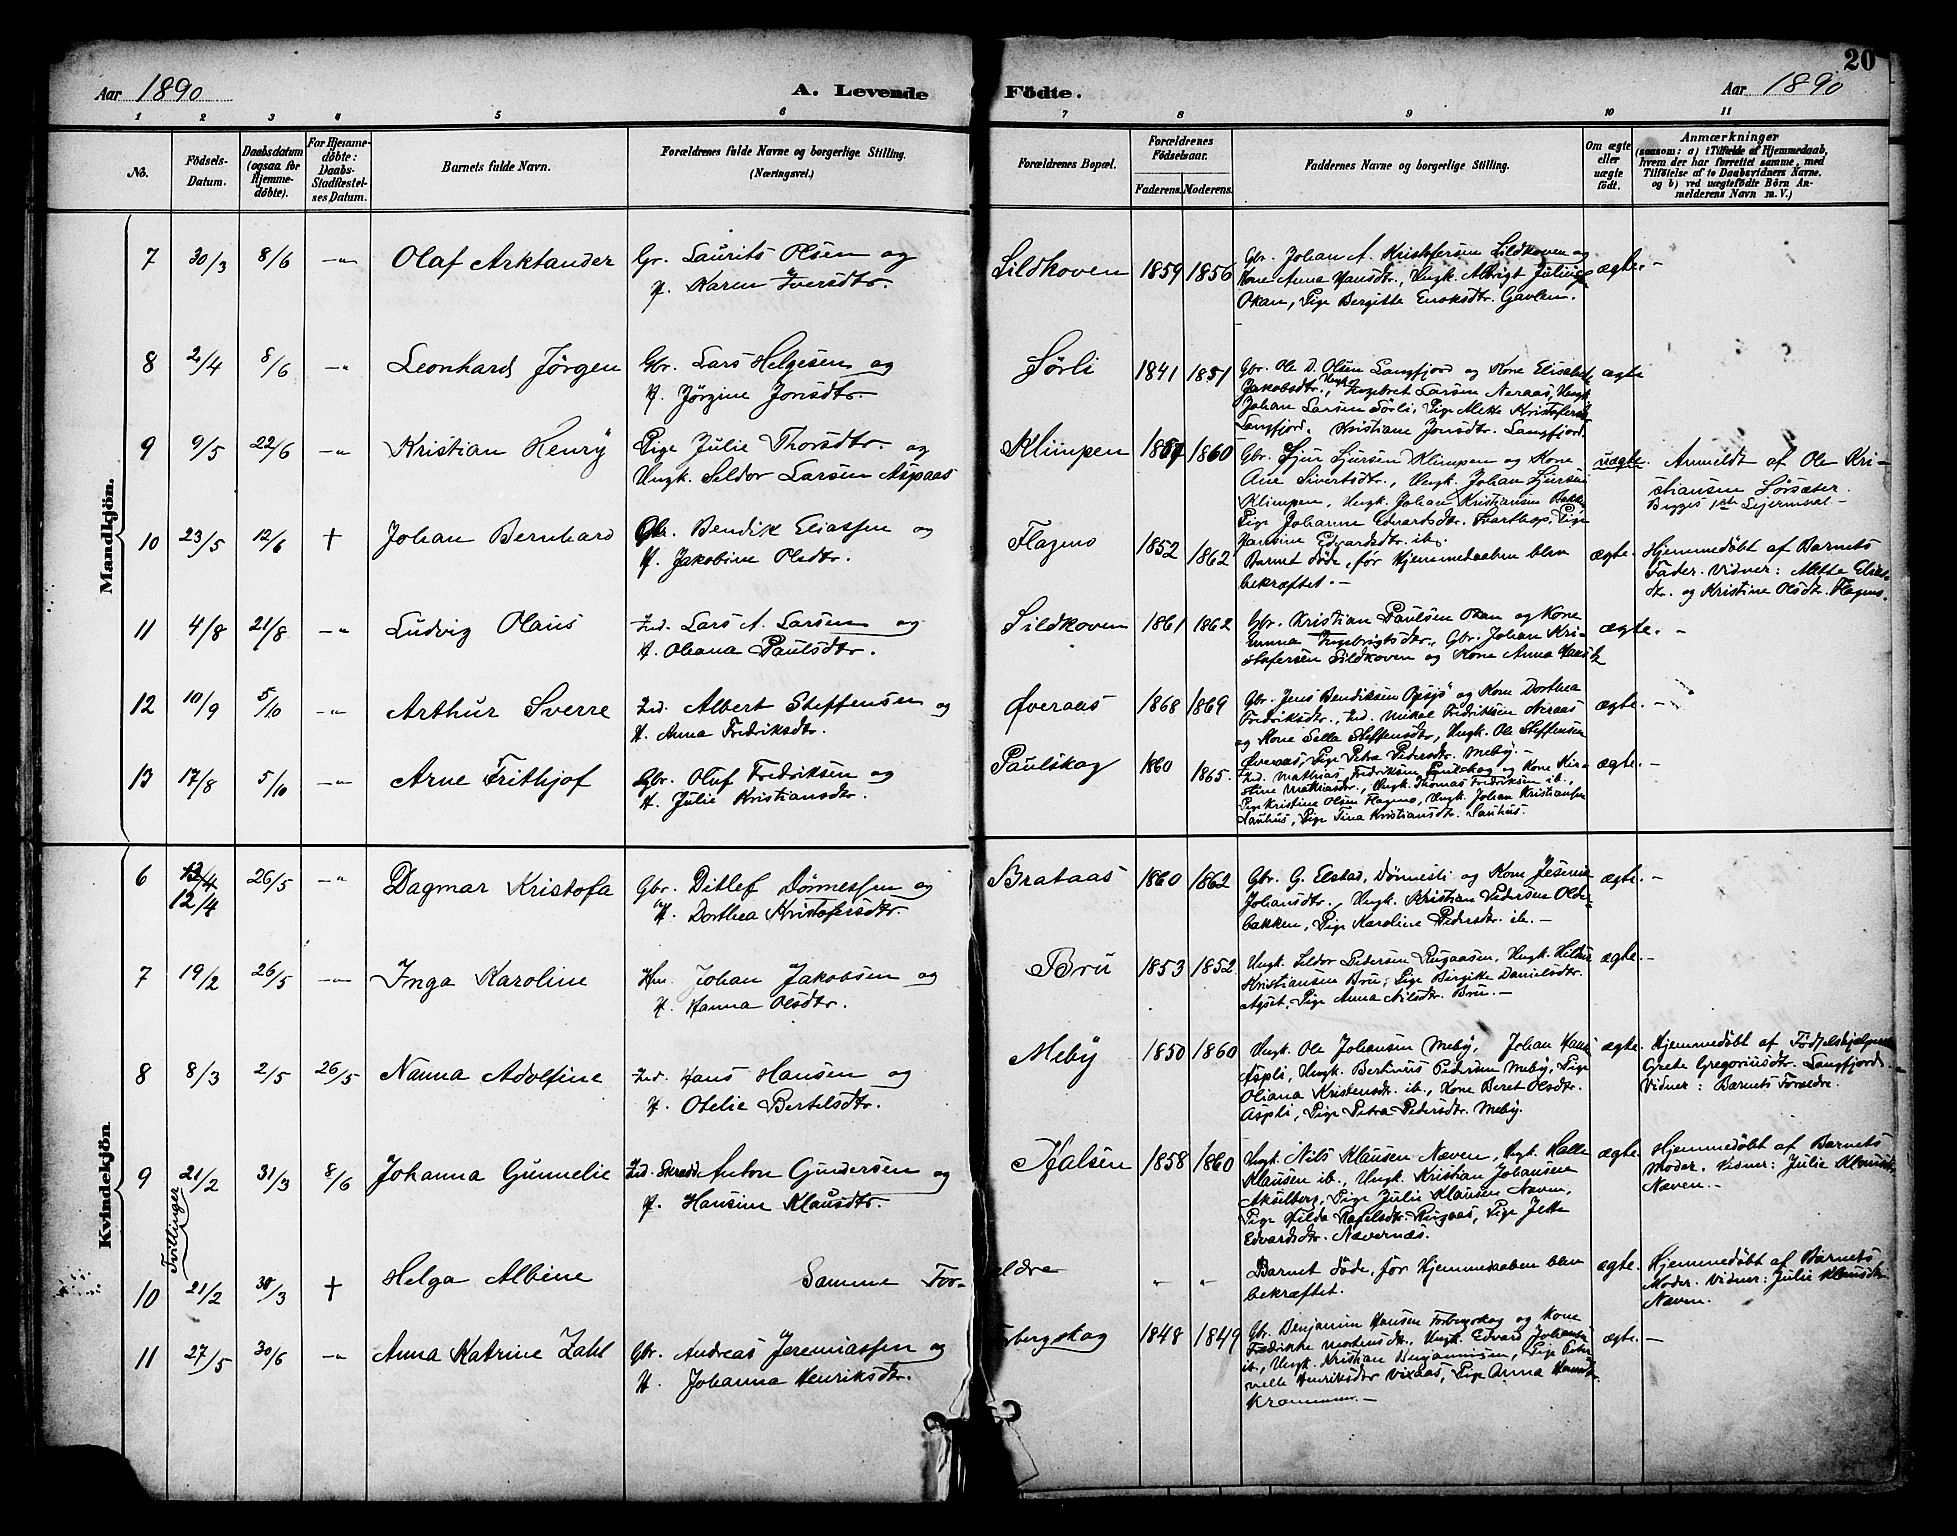 20
Aar 1890
A. Levende Födte.
Aar 1890
1 2 3 4 5 6 7 8 9 10 11
No.
Födsels-Datum.
Daabsdatum (ogsaa for Hjemmedöbte).
For Hjemmedöbte: Daabs-Stadfæstelses Datum.
Barnets fulde Navn.
Forældrenes fulde Navne og borgerlige Stilling. (Næringsvei.)
Forældrenes Bopæl.
Forældrenes Födselsaar.
Faderens. Moderens.
Faddernes Navne og borgerlige Stilling.
Om ægte eller uægte födt.
Anmærkninger
(saasom: a) i Tilfælde af Hjemmedaab, hvem der har forrettet samme, med Tilföielse af to Daabsvidners Navne. og b) ved uægtefödte Börn Anmelderens Navn m. V.)
Mandkjön.
7 30/3 8/6 -"- Olaf Arktander Gr. Laurits Olsen og
H. Karen Iversdtr.
Sildhoven 1859 1856
Gbr. Johan A. Kristofersen Sildhoven og
Kone Anna Hansdtr., Ungk. Albrigt Julius
Okan, Pige Bergitte Gavlen.
ægte. -
8 2/4 8/6 -"- Leonhard Jörgen Gbr. Lars Helgesen og
H. Jörgine Jonsdtr.
Sörli 1841 1851
Gbr. Ole D. Olsen Langfjord og Kone Elisabeth
Jakobsdtr., Ungk. Ingebret Larsen Neraas, Ungk.
Johan Larsen Sörli, Pige Mette Kristofersd.
Langfjord. Kristiane Jonsdtr. Langfjord.
ægte
9 9/5 22/6 -"- Kristian Henry Pige Julie Thorsdtr. og
Ungk. Seldor Larsen Aspaas
Klimpen 1857 1860
Gbr. Sjur Sjursen Klimpen og Kone
Ane Sivertsdtr., Ungk. Johan Sjursen
Klimpen, Ungk. Johan Kristiansen
Pige Johanna Edvardsdtr. Svarthop, Pige
Hansine Edvardsdtr. ib.
uægte.
Anmeldt af Ole Kristiansen Sörsæter.
Begges 1ste Lejermaal.
10 23/5 12/6 + Johan Bernhard Gbr. Bendik Eliassen og
H. Jakobine Olsdtr.
Flagmo 1852 1862
Barnet döde, för Hjemmedaaben blev
bekræftet. -
ægte.
Hjemmedöbt af Barnets
Fader. Vidner: Mette Eliasdtr.
og Kristine Olsdtr. Flagmo.
11 4/8 21/8 -"- Ludvig Olaus Ind. Lars A. Larsen og
H. Oleana Paulsdtr.
Sildhoven 1861 1862
Gbr. Kristian Paulsen Okan og Kone
Emma Ingebrigtsdtr., Gbr. Johan Kristofersen Sildhoven og Kone Anna Hansdtr
ægte. -
12 10/9 5/10 -"- Arthur Sverre Ind. Albert Steffensen og
H. Anna Fredriksdtr.
Överaas 1868 1869
Gbr. Jens Bendiksen Opsjö og Kone Dorthea
Fredriksdtr., Ind. Mikal Fredriksen Neraas
og Kone Sella Steffensdtr., Ungk. Ole Steffensen
Överaas, Pige Petra Pedersdtr. Meby. -
ægte. -
13 17/8 5/10 -"- Arne Frithjof Gbr. Oluf Fredriksen og
H. Julie Kristiansdtr.
Paulskag 1860 1865.
Ind. Mathias Fredriksen Paulskag og Kone Kristine Mathiasdtr., Ungk. Thomas Fredriksen ib.,
Pige Kristine Olsen Flagmo, Ungk. Johan Kristiansen
Sauhus, Pige Tina Kristiansdtr. Sauhus.
ægte. -
Kvindekjön
6 13/4 12/4 26/5 -"- Dagmar Kristofa Gbr. Ditlef Dönnessen og
H. Dorthea Kristofersdtr.
Brataas 1860 1862
Gbr. G. Elstad, Dönnesli og Kone Jesine
Johansdtr., Ungk. Kristian Pedersen Oldebakken, Pige Karoline Pedersdtr. ib. -
ægte. -
7 19/2 26/5 -"- Inga Karoline Hm. Johan Jakobsen og
H. Hanna Olsdtr.
Bru 1853 1852
Ungk. Seldor Pedersen Rugaasen, Ungk. Hilmar
Kristiansen Bru, Pige Bergitte Danielsdtr.
Agset, Pige Anna Nilsdtr. Bru. -
ægte. -
8 8/3 2/5 26/5 Nanna Adolfine Ind. Hans Hansen og
H. Otelie Bertelsdtr.
Meby 1850 1860
Ungk. Ole Johansen Meby, Johan Hans
Aspli, Ungk. Bertinus Pedersen Meby, Pige
Oliana Kristensdtr. ib., Kone Beret Olsdtr.
Aspli, Pige Petra Pedersdtr. Meby.
ægte.
Hjemmedöbt af Födselshjælperske
Grete Gregoriusdtr. Langfjord.
Vidner: Barnets Forældre.
Tvillinger
9 21/2 31/3 8/6 Johanna Gunnelie Ind. Skrædd. Anton Gundersen og
H. Hansine Klausdtr.
Kjalsen 1858 1860
Ungk. Nils Klausen Næven, Ungk. Halle
Klausen ib., Ungk. Kristian Johansen
Akselberg, Pige Julie Klausen Næven,
Pige Hilda Rafelsdtr. Rugaas, Pige Jette
Edvardsdtr. Nævernæs.
ægte.
Hjemmedöbt af Barnets
Moder. Vidner: Julie Klausdtr.
Næven. -
10 21/2 30/3 + Helga Albine Samme Forældre " "
Barnet döde, för Hjemmedaaben blev
bekræftet.
ægte.
Hjemmedöbt af Barnets
Moder. Vidner: Julie Klausdtr.
Næven.
11 27/5 30/6 -"- Anna Katrine Zahl Gbr. Andreas Jeremiassen og
H. Johanna Henriksdtr.
bergskag 1848 1849
Gbr. Benjamin Hansen Forbergskag og Kone
Fredrikke Mortensdtr., Ungk. Edvard Johansen
ib., Ungk. Kristian Benjaminsen, Pige Petronelle Henriksdtr Vixaas, Pige Anna
ægte. -